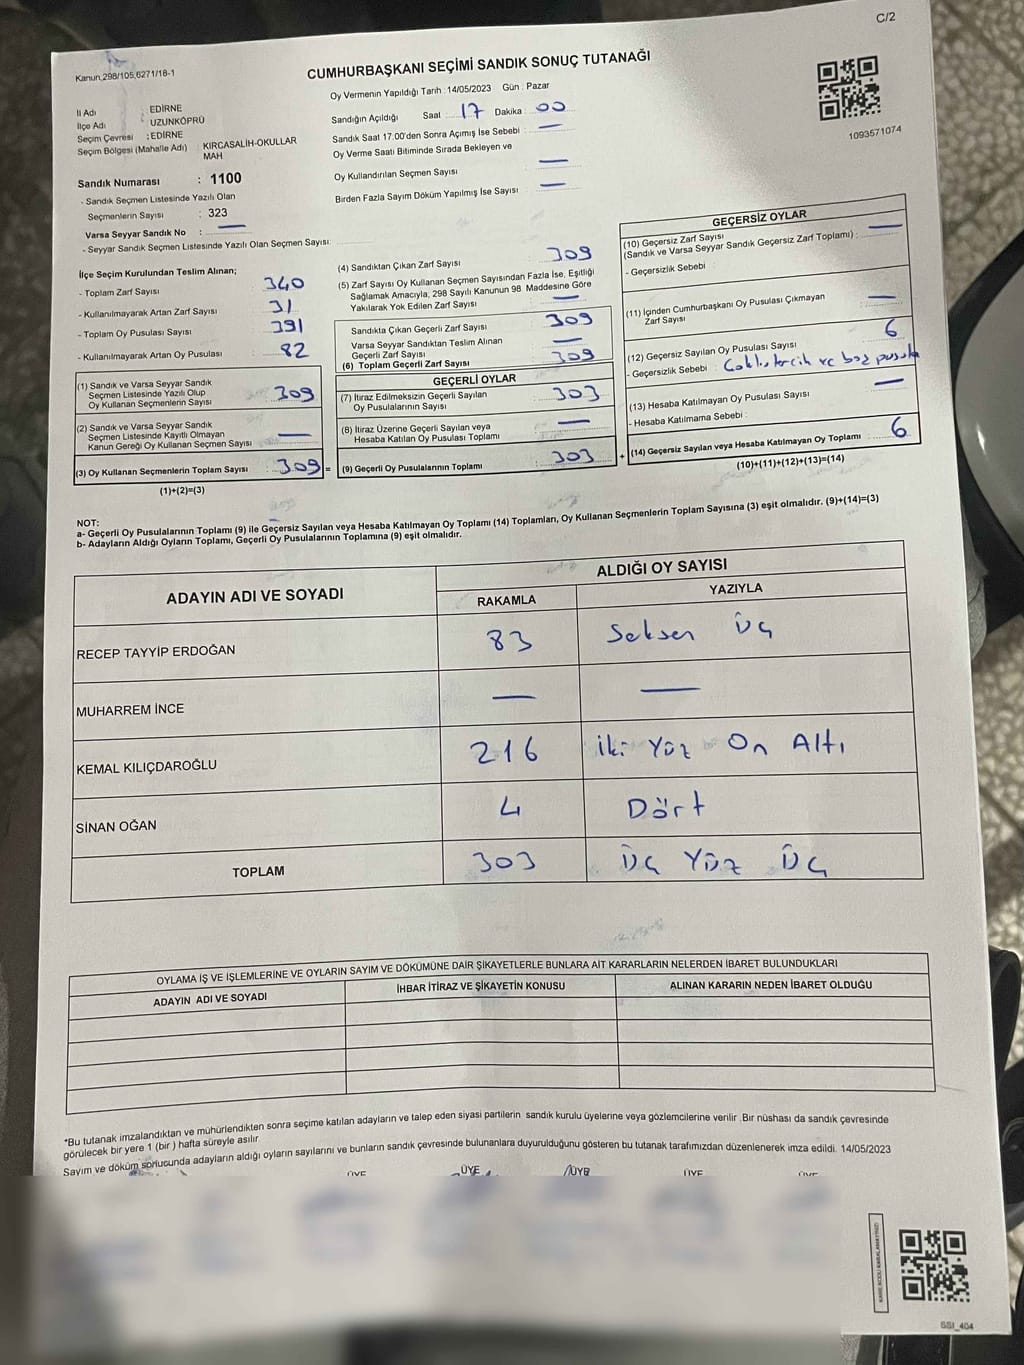 C/2
Kanun 298/105,6271/18-1
CUMHURBAŞKANI SEÇİMİ SANDIK SONUÇ TUTANAĞI
1093571074
İl Adı : EDİRNE
İlçe Adı : UZUNKÖPRÜ
Seçim Çevresi : EDİRNE
Seçim Bölgesi (Mahalle Adı) : KIRCASALİH-OKULLAR MAH
Sandık Numarası : 1100
- Sandık Seçmen Listesinde Yazılı Olan
Seçmenlerin Sayısı : 323
Varsa Seyyar Sandık No : —
- Seyyar Sandık Seçmen Listesinde Yazılı Olan Seçmen Sayısı:
Oy Vermenin Yapıldığı Tarih : 14/05/2023 Gün : Pazar
Sandığın Açıldığı Saat 17 Dakika : 00
Sandık Saat 17.00'den Sonra Açımış İse Sebebi : —
Oy Verme Saati Bitiminde Sırada Bekleyen ve
Oy Kullandırılan Seçmen Sayısı —
Birden Fazla Sayım Döküm Yapılmış İse Sayısı —
İlçe Seçim Kurulundan Teslim Alınan;
- Toplam Zarf Sayısı : 340
- Kullanılmayarak Artan Zarf Sayısı : 31
- Toplam Oy Pusulası Sayısı : 391
- Kullanılmayarak Artan Oy Pusulası : 82
(1) Sandık ve Varsa Seyyar Sandık
Seçmen Listesinde Yazılı Olup
Oy Kullanan Seçmenlerin Sayısı : 309
(2) Sandık ve Varsa Seyyar Sandık
Seçmen Listesinde Kayıtlı Olmayan
Kanun Gereği Oy Kullanan Seçmen Sayısı : —
(3) Oy Kullanan Seçmenlerin Toplam Sayısı : 309 =
(1)+(2)=(3)
(4) Sandıktan Çıkan Zarf Sayısı : 309
(5) Zarf Sayısı Oy Kullanan Seçmen Sayısından Fazla İse, Eşitliği
Sağlamak Amacıyla, 298 Sayılı Kanunun 98. Maddesine Göre
Yakılarak Yok Edilen Zarf Sayısı : —
Sandıkta Çıkan Geçerli Zarf Sayısı : 309
Varsa Seyyar Sandıktan Teslim Alınan
Geçerli Zarf Sayısı : —
(6) Toplam Geçerli Zarf Sayısı : 309
GEÇERLİ OYLAR
(7) İtiraz Edilmeksizin Geçerli Sayılan
Oy Pusulalarının Sayısı : 303
(8) İtiraz Üzerine Geçerli Sayılan veya
Hesaba Katılan Oy Pusulası Toplamı : —
(9) Geçerli Oy Pusulalarının Toplamı : 303 +
GEÇERSİZ OYLAR
(10) Geçersiz Zarf Sayısı
(Sandık ve Varsa Seyyar Sandık Geçersiz Zarf Toplamı) : —
- Geçersizlik Sebebi :
(11) İçinden Cumhurbaşkanı Oy Pusulası Çıkmayan
Zarf Sayısı : —
(12) Geçersiz Sayılan Oy Pusulası Sayısı : 6
- Geçersizlik Sebebi : Çoklu tercih ve boş pusula
(13) Hesaba Katılmayan Oy Pusulası Sayısı : —
- Hesaba Katılmama Sebebi :
(14) Geçersiz Sayılan veya Hesaba Katılmayan Oy Toplamı : 6
(10)+(11)+(12)+(13)=(14)
NOT:
a- Geçerli Oy Pusulalarının Toplamı (9) ile Geçersiz Sayılan veya Hesaba Katılmayan Oy Toplamı (14) Toplamları, Oy Kullanan Seçmenlerin Toplam Sayısına (3) eşit olmalıdır. (9)+(14)=(3)
b- Adayların Aldığı Oyların Toplamı, Geçerli Oy Pusulalarının Toplamına (9) eşit olmalıdır.
ADAYIN ADI VE SOYADI
ALDIĞI OY SAYISI
RAKAMLA YAZIYLA
RECEP TAYYİP ERDOĞAN 83 Seksen Üç
MUHARREM İNCE — —
KEMAL KILIÇDAROĞLU 216 İki Yüz On Altı
SİNAN OĞAN 4 Dört
TOPLAM 303 Üç Yüz Üç
OYLAMA İŞ VE İŞLEMLERİNE VE OYLARIN SAYIM VE DÖKÜMÜNE DAİR ŞİKAYETLERLE BUNLARA AİT KARARLARIN NELERDEN İBARET BULUNDUKLARI
ADAYIN ADI VE SOYADI İHBAR İTİRAZ VE ŞİKAYETİN KONUSU ALINAN KARARIN NEDEN İBARET OLDUĞU
*Bu tutanak imzalandıktan ve mühürlendikten sonra seçime katılan adayların ve talep eden siyasi partilerin sandık kurulu üyelerine veya gözlemcilerine verilir .Bir nüshası da sandık çevresinde
görülecek bir yere 1 (bir ) hafta süreyle asılır
Sayım ve döküm sonucunda adayların aldığı oyların sayılarını ve bunların sandık çevresinde bulunanlara duyurulduğunu gösteren bu tutanak tarafımızdan düzenlenerek imza edildi. 14/05/2023
ÜYE ÜYE ÜYE ÜYE ÜYE
SSI_404